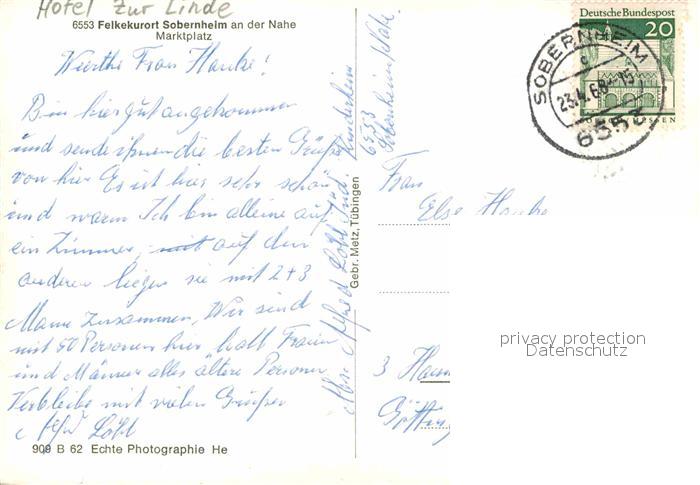 Hotel Zur Linde
6553 Felkekurort Sobernheim an der Nahe
Marktplatz
Werthe Frau Hanke!
Bin hier gut angekommen
und sende ihnen die besten Grüße
von hier Es ist hier sehr schön
und warm Ich bin alleine auf
ein Zimmer, mit auf den
anderen liegen sie mit 2+3
Mann zusammen, Wir sind
mit 50 Personen hier, halb Frauen
und Männer alles ältere Personen
Verbleibe mit vielen Grüßen
Löbl
909 B 62 Echte Photographie He
Alfred Löbl
6553
Sobernheim
Gebr. Metz, Tübingen
Deutsche Bundespost
20
SOBERNHEIM
c
23.4.68-15
6553
Frau
Else Hanke
privacy protection
Datenschutz
3 Hann
Götting